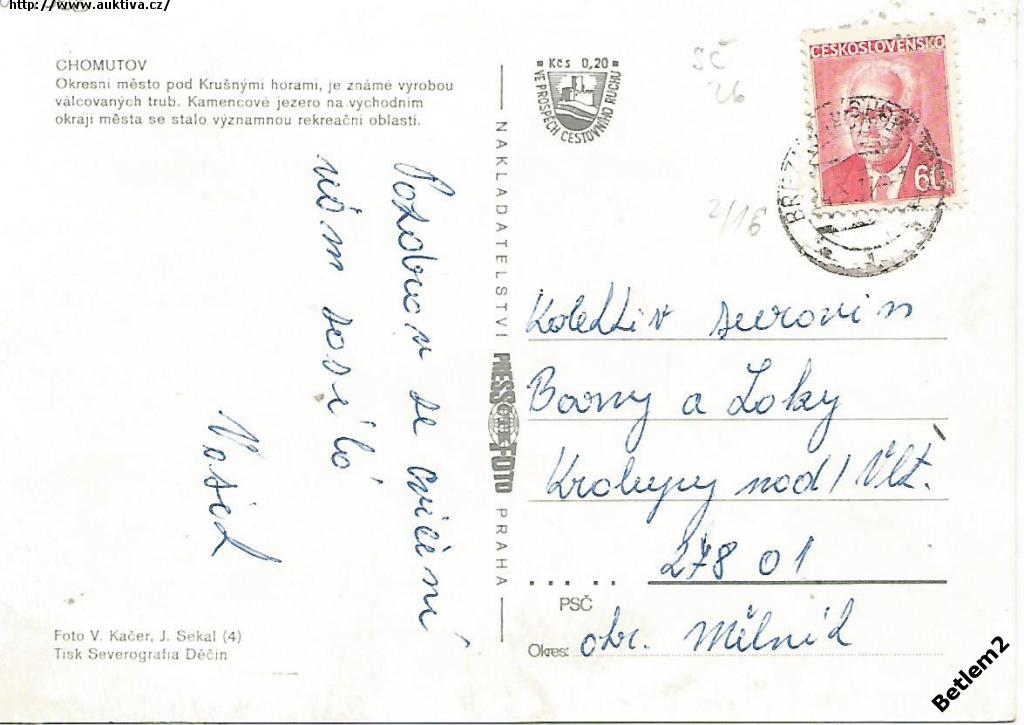 http://www.auktiva.cz/
CHOMUTOV
Okresní město pod Krušnými horami, je známé výrobou
válcovaných trub. Kamencové jezero na východním
okraji města se stalo významnou rekreační oblastí.
Kčs 0,20
VE PROSPĚCH CESTOVNÍHO RUCHU
ČESKOSLOVENSKO
60
SČ
26
2/16
Pozdrav se cvičení
vám posílá
NAKLADATELSTVÍ PRESSFOTO PRAHA
Kolektiv surovin
Barvy a Laky
Kralupy nad/Vlt.
278 01
PSČ
Okres: okr. Mělník
Foto V. Kačer, J. Sekal (4)
Tisk Severografia Děčín
Betlem2